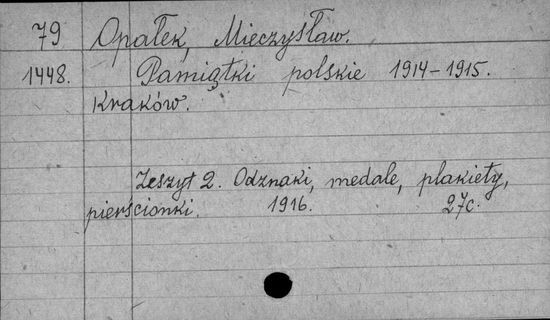 79 Opałek, Mieczysław.
1448. Pamiątki polskie 1914-1915.
Kraków.
Zeszyt 2. Odznaki, medale, plakiety,
pierścionki. 1916. 27c.